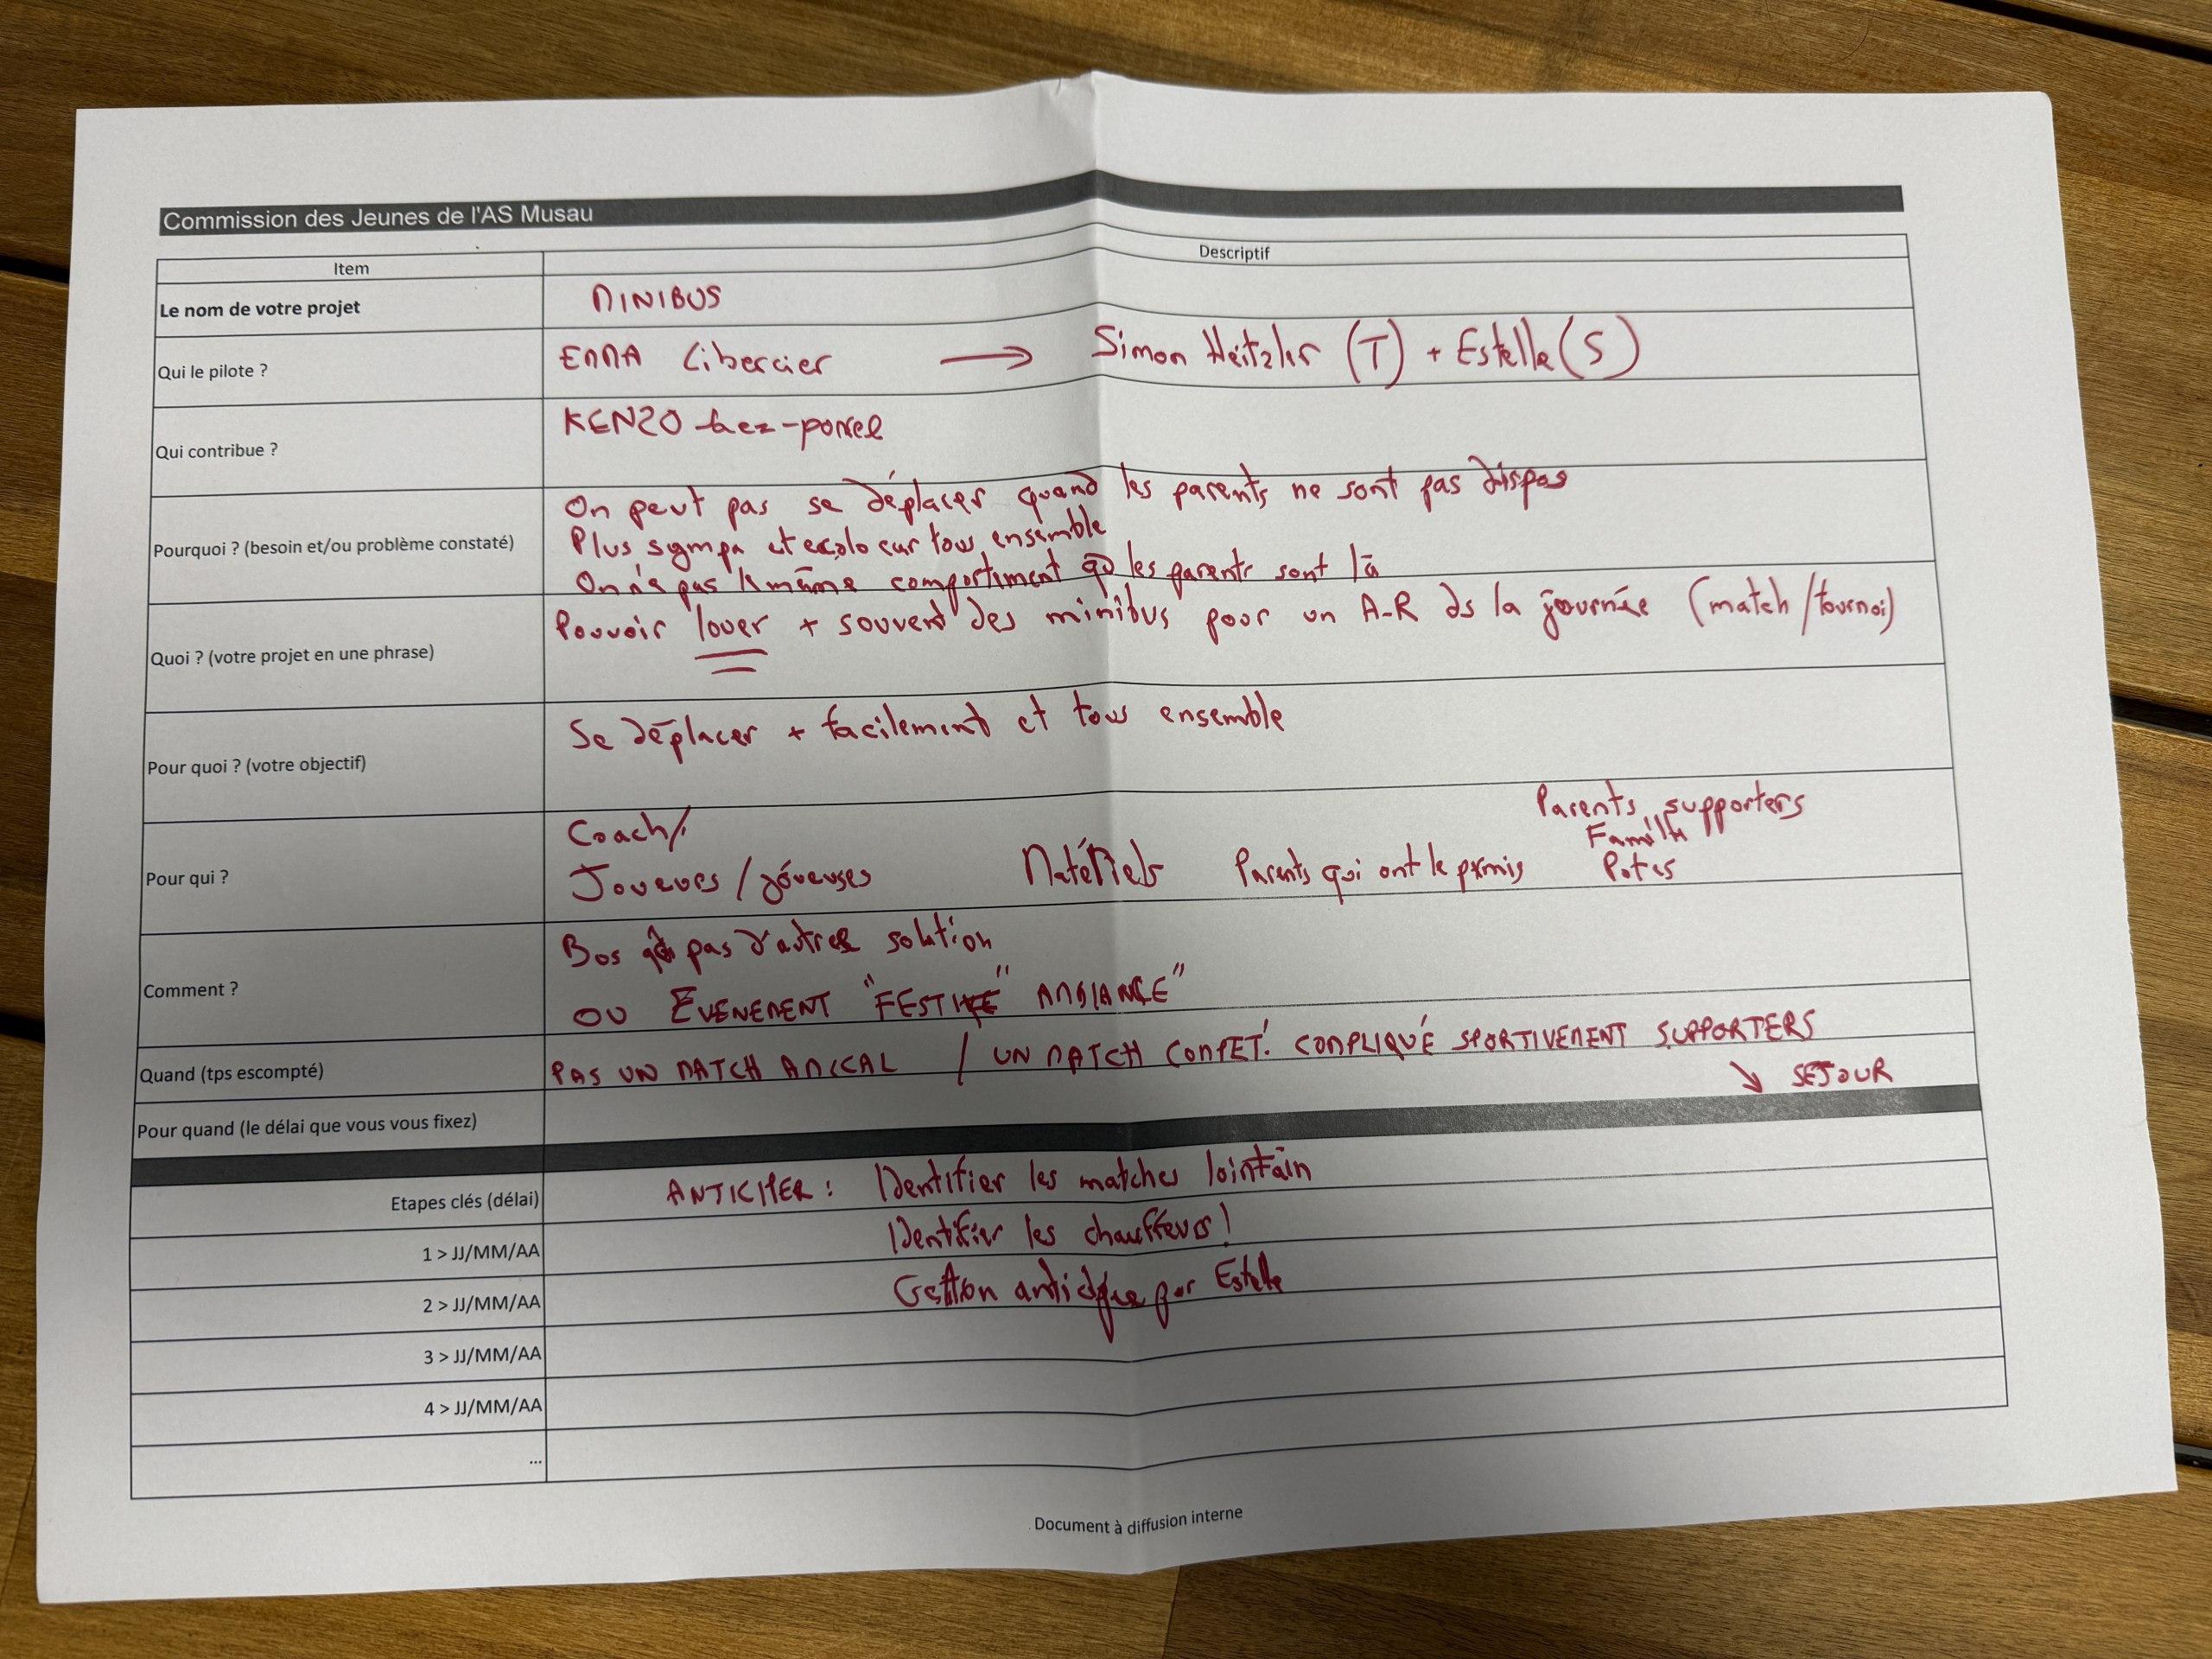 Commission des Jeunes de l'AS Musau
Item Descriptif
Le nom de votre projet MINIBUS
Qui le pilote ? EMMA Libercier → Simon Heitzler (T) + Estelle (S)
Qui contribue ? KENZO
Pourquoi ? (besoin et/ou problème constaté)
On peut pas se déplacer quand les parents ne sont pas dispos
Plus sympa et écolo car tous ensemble
On n'a pas le même comportement qd les parents sont là
Quoi ? (votre projet en une phrase) Pouvoir louer + souvent des minibus pour un A-R ds la journée (match/tournoi)
Pour quoi ? (votre objectif) Se déplacer + facilement et tous ensemble
Parents, supporters
Coach/ Famille
Pour qui ? Joueurs / joueuses Matériels Parents qui ont le permis Potes
Comment ?
Bus qd pas d'autres solution
OU EVENEMENT "FESTIVE" AMBIANCE"
Quand (tps escompté) PAS UN MATCH AMICAL / UN MATCH COMPET. COMPLIQUÉ SPORTIVEMENT SUPPORTERS
↘ SEJOUR
Pour quand (le délai que vous vous fixez)
Etapes clés (délai) ANTICIPER : Identifier les matches lointain
1 > JJ/MM/AA Identifier les chauffeurs !
2 > JJ/MM/AA Gestion par Estelle
3 > JJ/MM/AA
4 > JJ/MM/AA
...
Document à diffusion interne